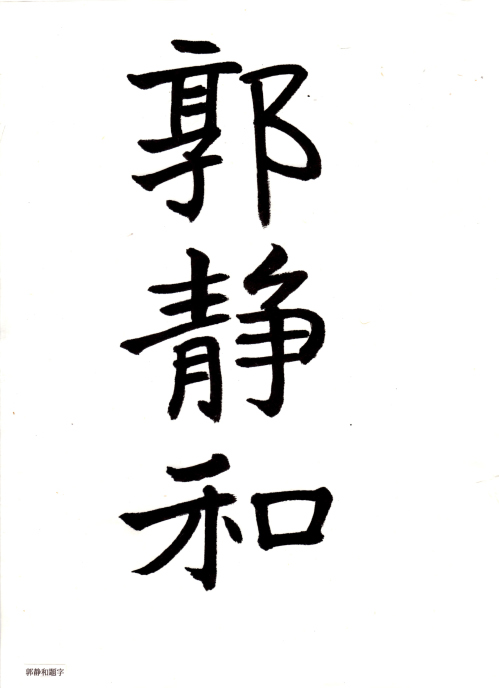 郭静和
郭静和题字